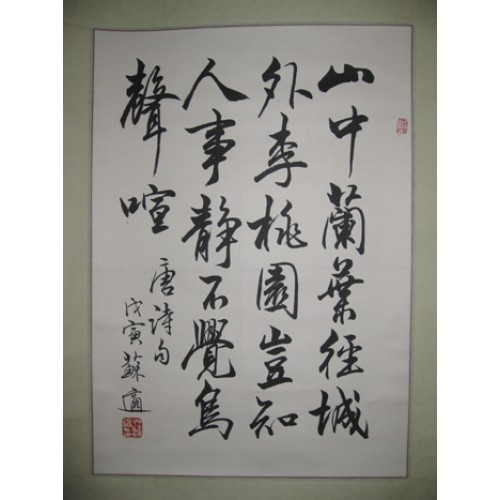 山中蘭葉徑城
外李桃園豈知
人事靜不覺鳥
聲喧
唐詩句
戊寅蘇適